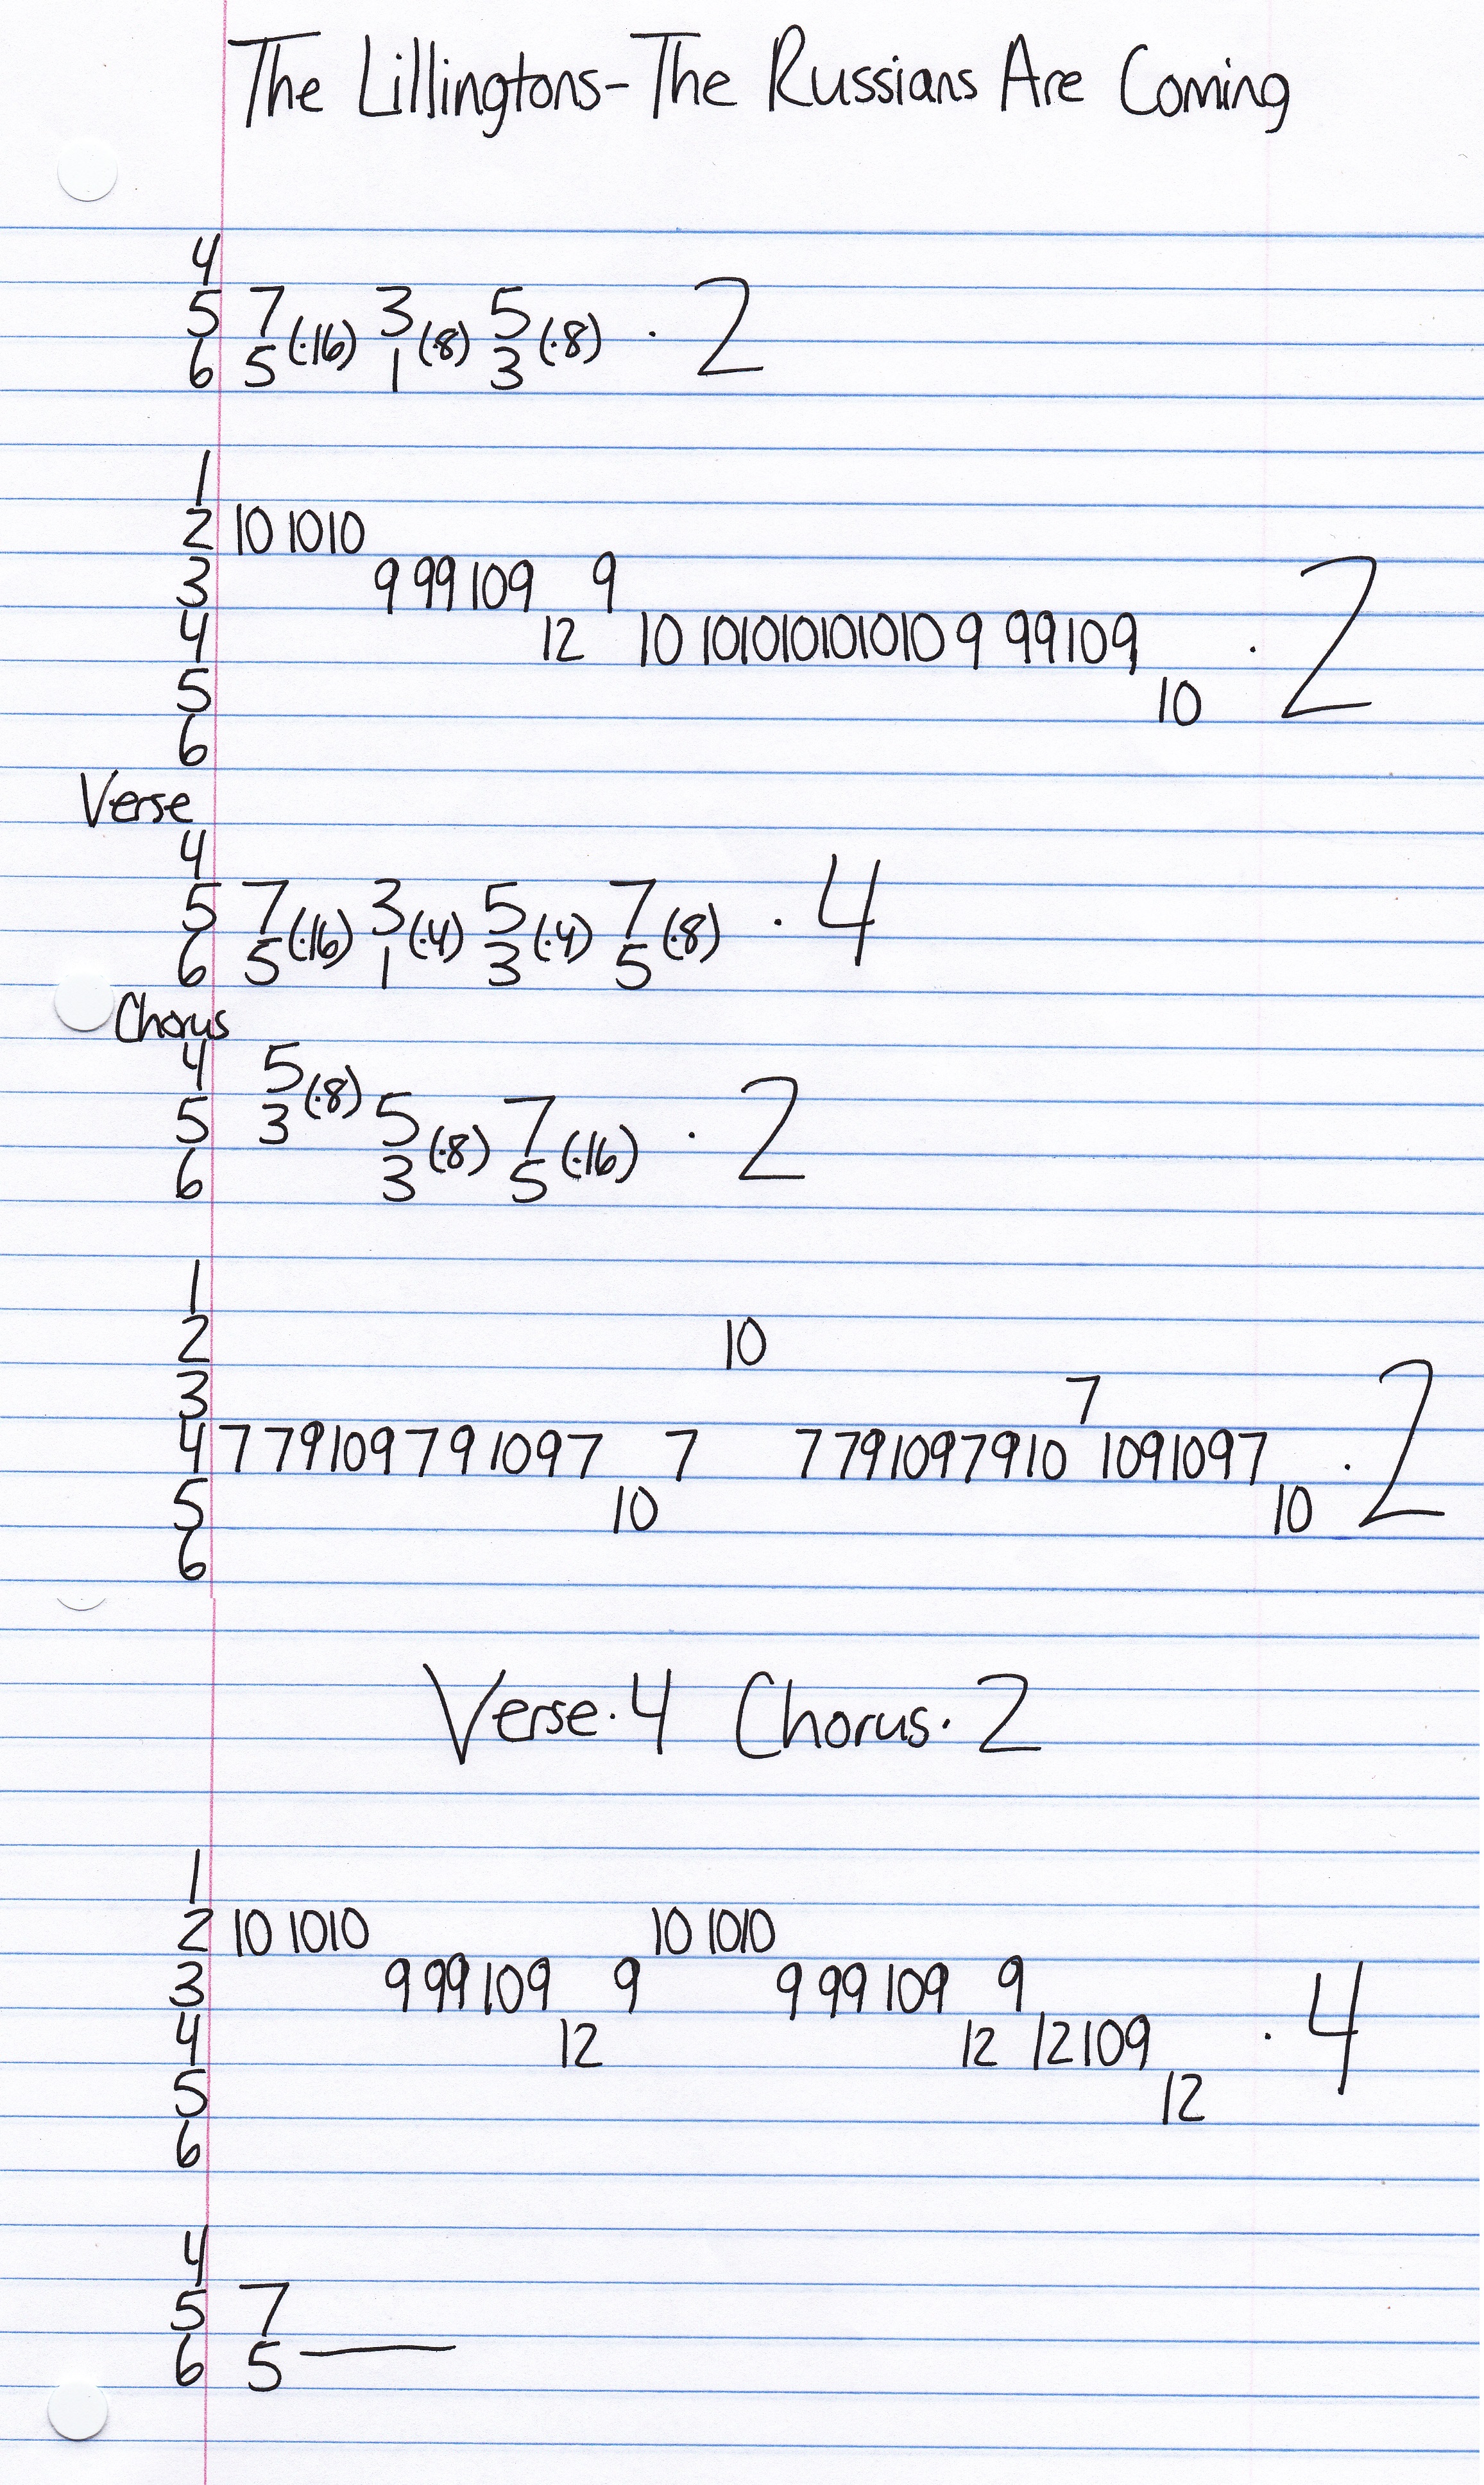 The Lillingtons-The Russians Are Coming
4
5 7 (·16) 3 (·8) 5 (·8) · 2
6 5 1 3
1
2 10 1010
3 9 99 109 9
4 12 10 101010101010 9 99109 · 2
5 10
6
Verse
4
5 7 (·16) 3 (·4) 5 (·4) 7 (·8) · 4
6 5 1 3 5
Chorus
4 5 (·8)
5 3 5 (·8) 7 (·16) · 2
6 3 5
1
2 10
3 7
4 7 79109 79 1097 7 7 791097910 1091097 · 2
5 10 10
6
Verse·4 Chorus·2
1
2 10 1010 10 1010
3 9 99 109 9 9 99 109 9
4 12 12 12109 · 4
5 12
6
4
5 7
6 5 —